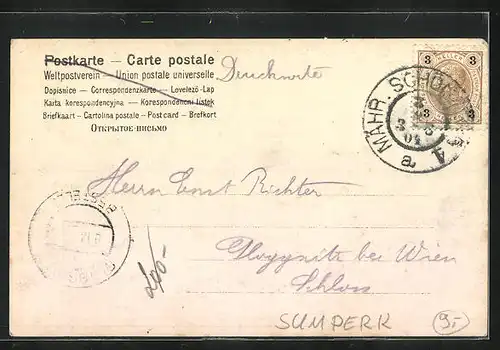 Postkarte — Carte postale
Weltpostverein — Union postale universelle
Dopisnice — Correspondenzkarte — Levelező-Lap
Karta korespondencyjna — Korespondenčni listek
Briefkaart — Cartolina postale — Post card — Brefkort
ОТКРЫТОЕ-ПИСЬМО
Drucksorte
3 HELLER 3
3 3
MÄHR. SCHÖN
a
Herrn Ernst Richter
bei Wien
Schloss
SUMPERK
9,-